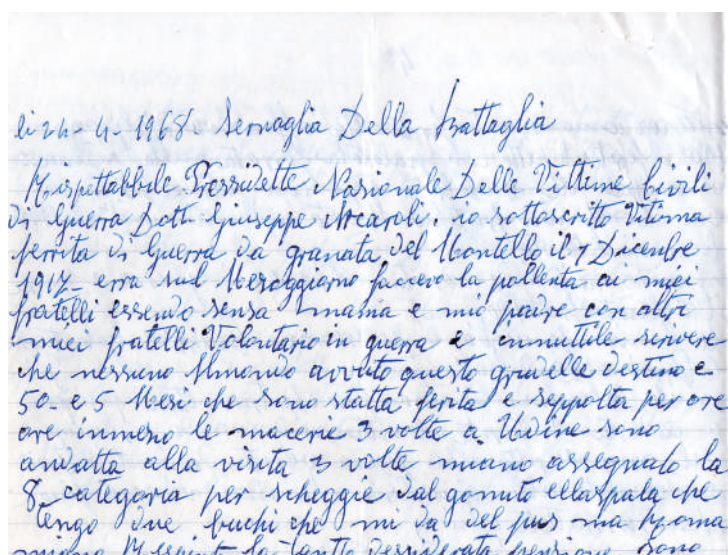 li 24-4-1968 Sernaglia Della Battaglia
Rispettabbile Pressidette Nasionale Delle Vittime Civili
Di Guerra Dott Giuseppe Arcaroli. io sottoscritto Vitima
ferrita Di Guerra Da granata Del Montello il 7 Dicembre
1917- erra sul Mezoggiorno facevo la pollenta ai miei
fratelli essendo sensa mama e mio padre con altri
miei fratelli Volontario in guerra è innuttile scrivere
che nessuno Almondo avvuto questo grudelle destino e
50- e 5 Mesi che sono statta ferita e seppolta per ore
ore inmeso le macerie 3 volte a Udine sono
andatta alla visita 3 volte miano assegnato la
8 categoria per scheggie dal gomito ellaspala che
tengo due buchi che mi da del pus ma Rroma
miano la tanto dessiderata penssione sono